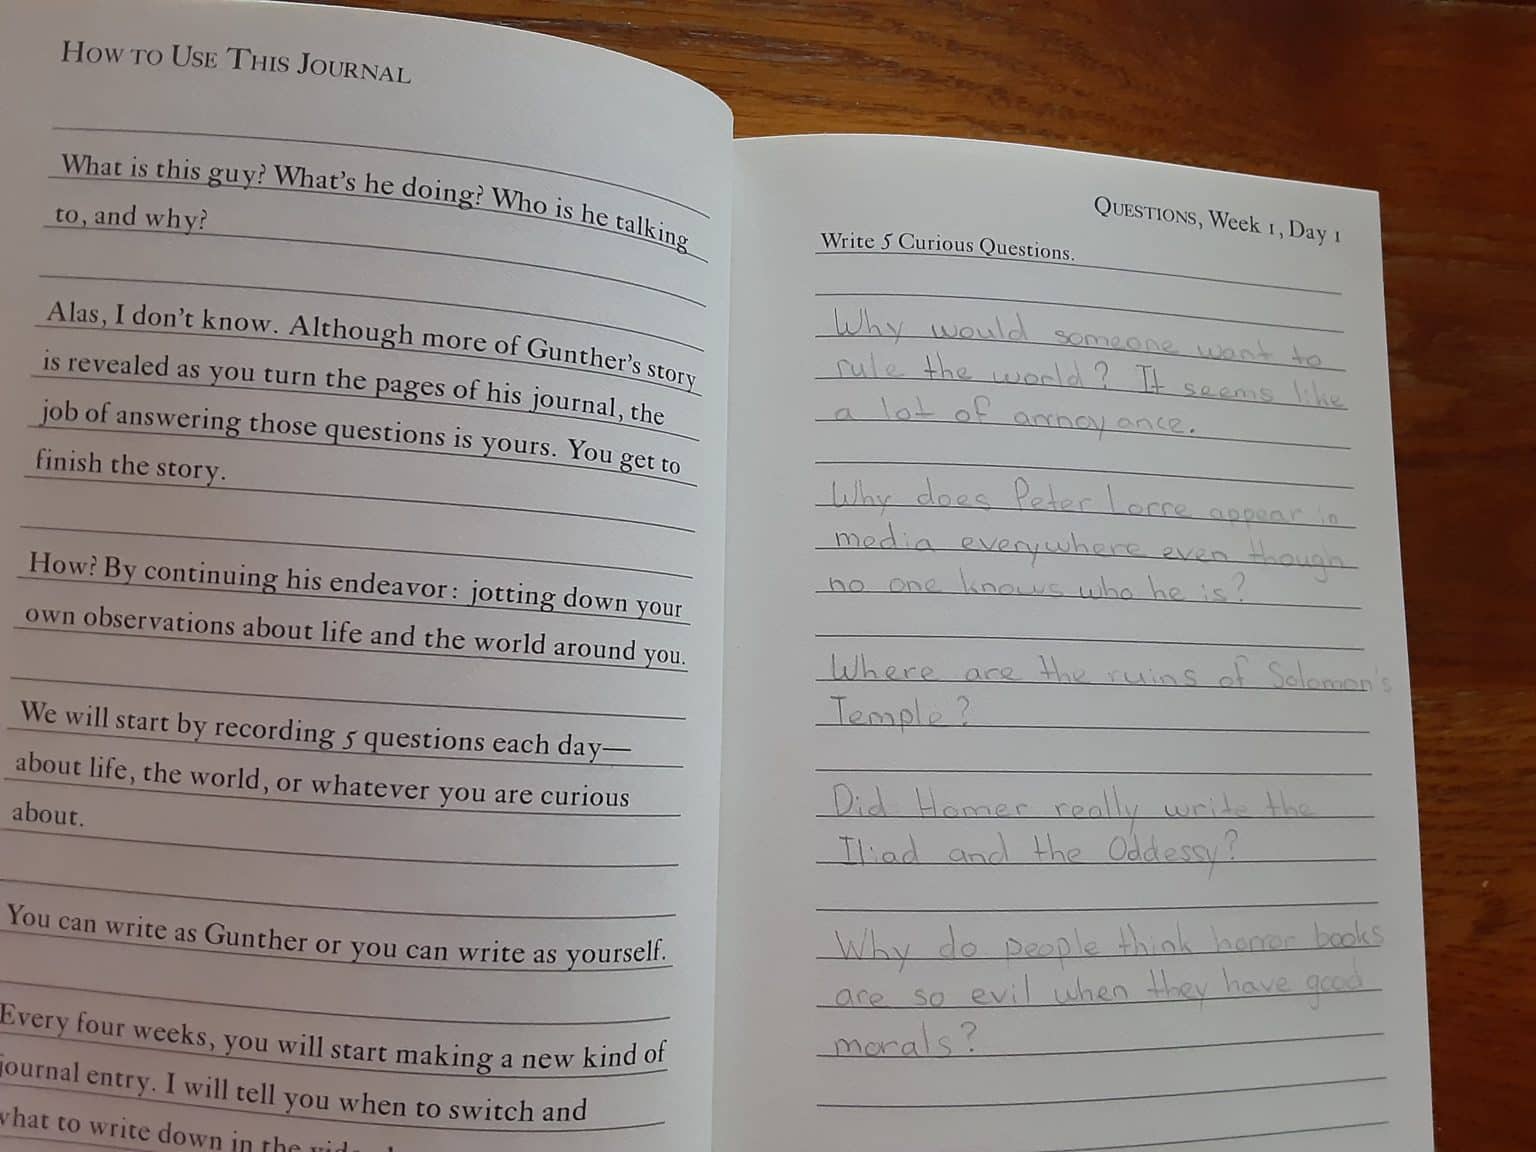 HOW TO USE THIS JOURNAL
What is this guy? What's he doing? Who is he talking
to, and why?
Alas, I don't know. Although more of Gunther's story
is revealed as you turn the pages of his journal, the
job of answering those questions is yours. You get to
finish the story.
How? By continuing his endeavor: jotting down your
own observations about life and the world around you.
We will start by recording 5 questions each day—
about life, the world, or whatever you are curious
about.
You can write as Gunther or you can write as yourself.
Every four weeks, you will start making a new kind of
journal entry. I will tell you when to switch and
what to write down in the
QUESTIONS, Week 1, Day 1
Write 5 Curious Questions.
Why would someone want to
rule the world? It seems like
a lot of annoyance.
Why does Peter Lorre appear in
media everywhere even though
no one knows who he is?
Where are the ruins of Solomon's
Temple?
Did Homer really write the
Iliad and the Oddessy?
Why do people think horror books
are so evil when they have good
morals?